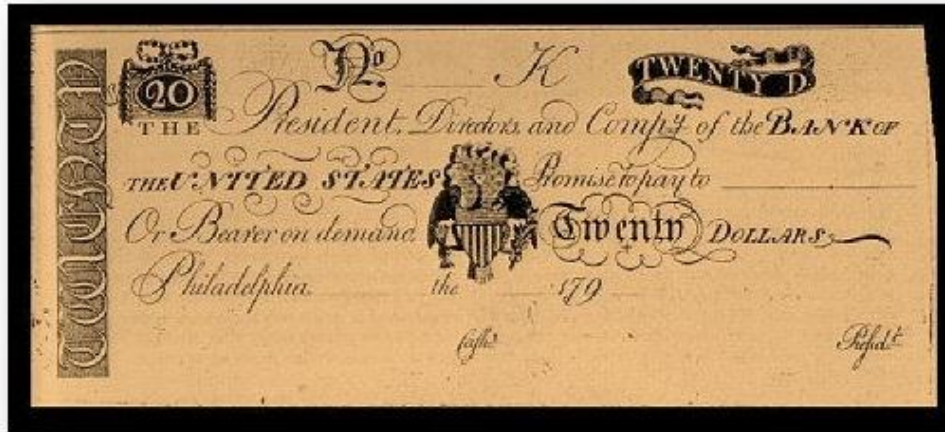 TWENTY
20
No K
TWENTY D.
THE President, Directors, and Compy. of the BANK OF
THE UNITED STATES Promise to pay to
Or Bearer on demand Twenty DOLLARS
Philadelphia the 179
Cashr. Presidt.